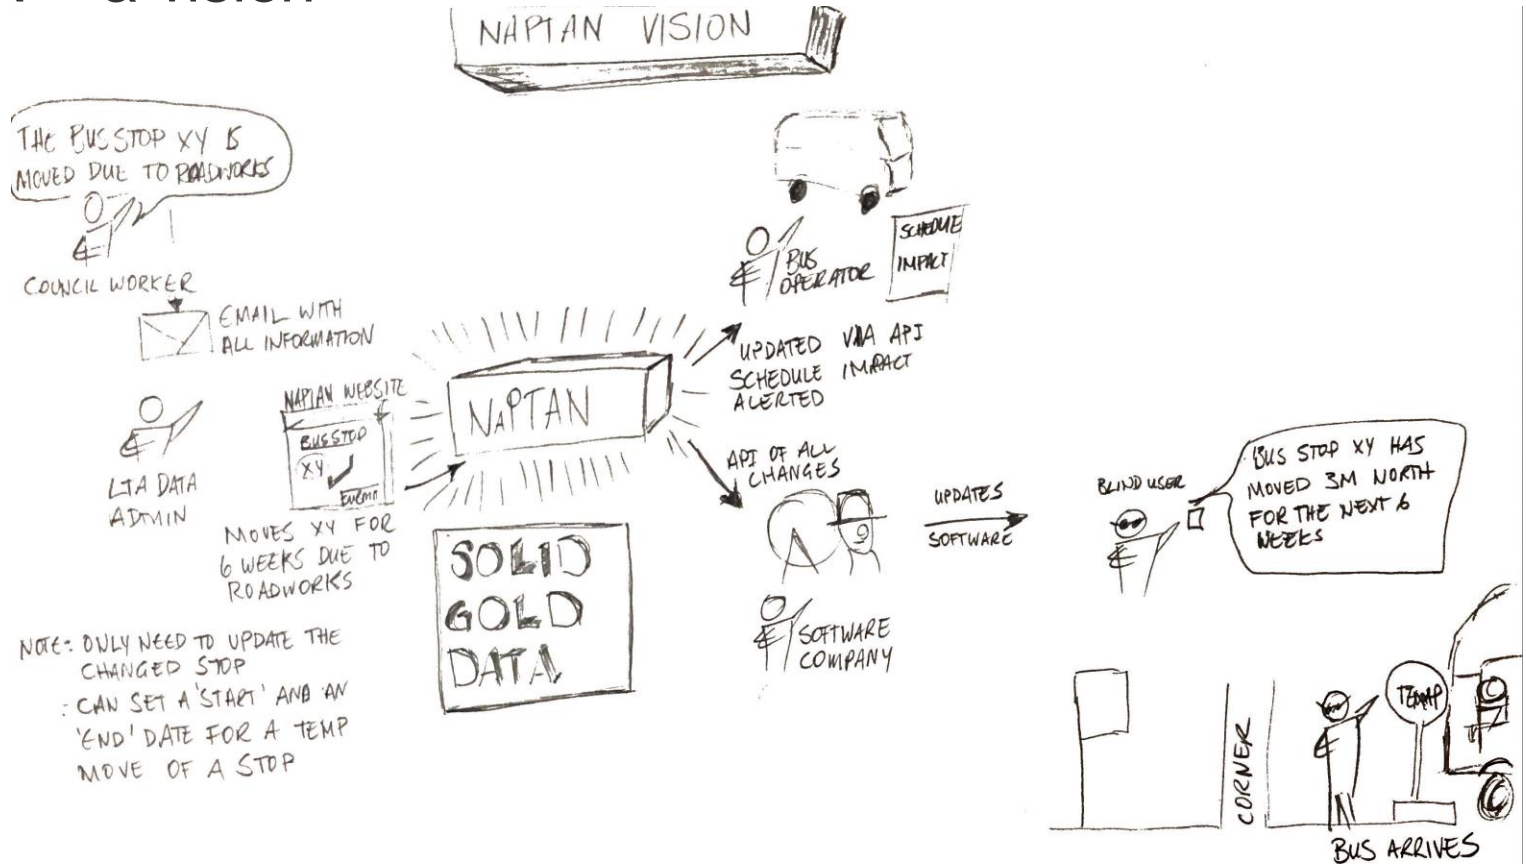 a vision
NAPTAN VISION
THE BUS STOP XY IS
MOVED DUE TO ROADWORKS
COUNCIL WORKER
EMAIL WITH
ALL INFORMATION
LTA DATA
ADMIN
NAPTAN WEBSITE
BUS STOP
XY
MOVES XY FOR
6 WEEKS DUE TO
ROADWORKS
NOTE: ONLY NEED TO UPDATE THE
CHANGED STOP
: CAN SET A 'START' AND AN
'END' DATE FOR A TEMP
MOVE OF A STOP
NAPTAN
SOLID
GOLD
DATA
BUS
OPERATOR
SCHEDULE
IMPACT
UPDATED VIA API
SCHEDULE IMPACT
ALERTED
API OF ALL
CHANGES
SOFTWARE
COMPANY
UPDATES
SOFTWARE
BLIND USER
BUS STOP XY HAS
MOVED 3M NORTH
FOR THE NEXT 6
WEEKS
CORNER
TEMP
BUS ARRIVES